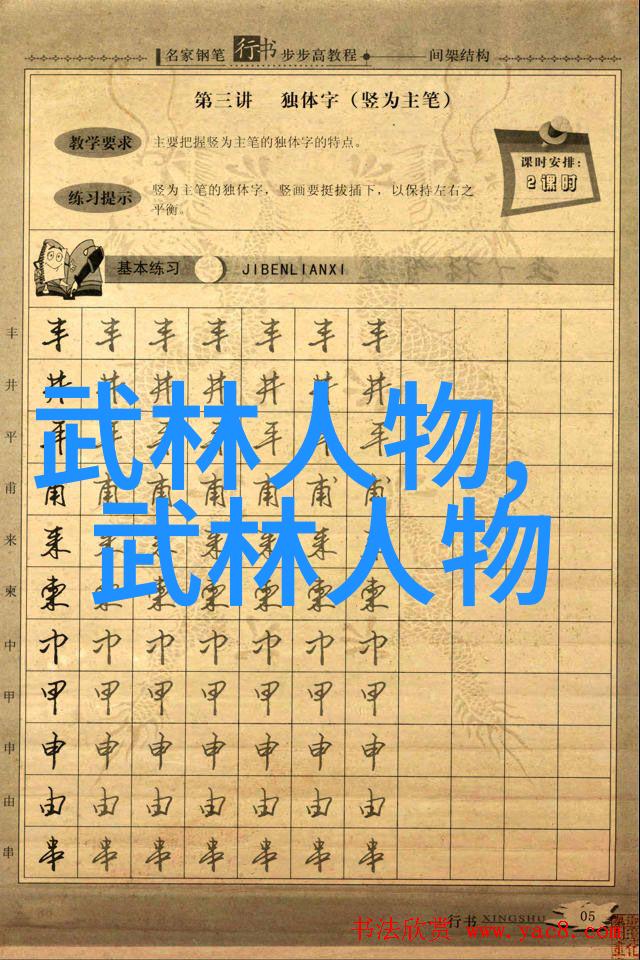 名家钢笔 行书 步步高教程 间架结构
第三讲 独体字（竖为主笔）
教学要求 主要把握竖为主笔的独体字的特点。
课时安排：
2课时
练习提示 竖为主笔的独体字，竖画要挺拔插下，以保持左右之
平衡。
基本练习 JIBENLIANXI
丰 丰 丰 丰 丰 丰 丰 丰
井 井 井 井 井 井 井 井
武林人物，
平 平 平 平 平 平 平 平
甫 甫 甫 甫 甫 甫 甫 甫
武林人物
来 来 来 来 来 来 来
柬 柬 柬 柬 柬 柬 柬 柬
中 中 中 中 中 中 中 中
甲 甲 甲 甲 甲 甲 甲 甲
申 申 申 申 申 申 申 申
由 由 由 由 由 由 由 由
串 串 串 串 串 串 串 串
行书 XINGSHU 05
书法欣赏 www.yac8.com